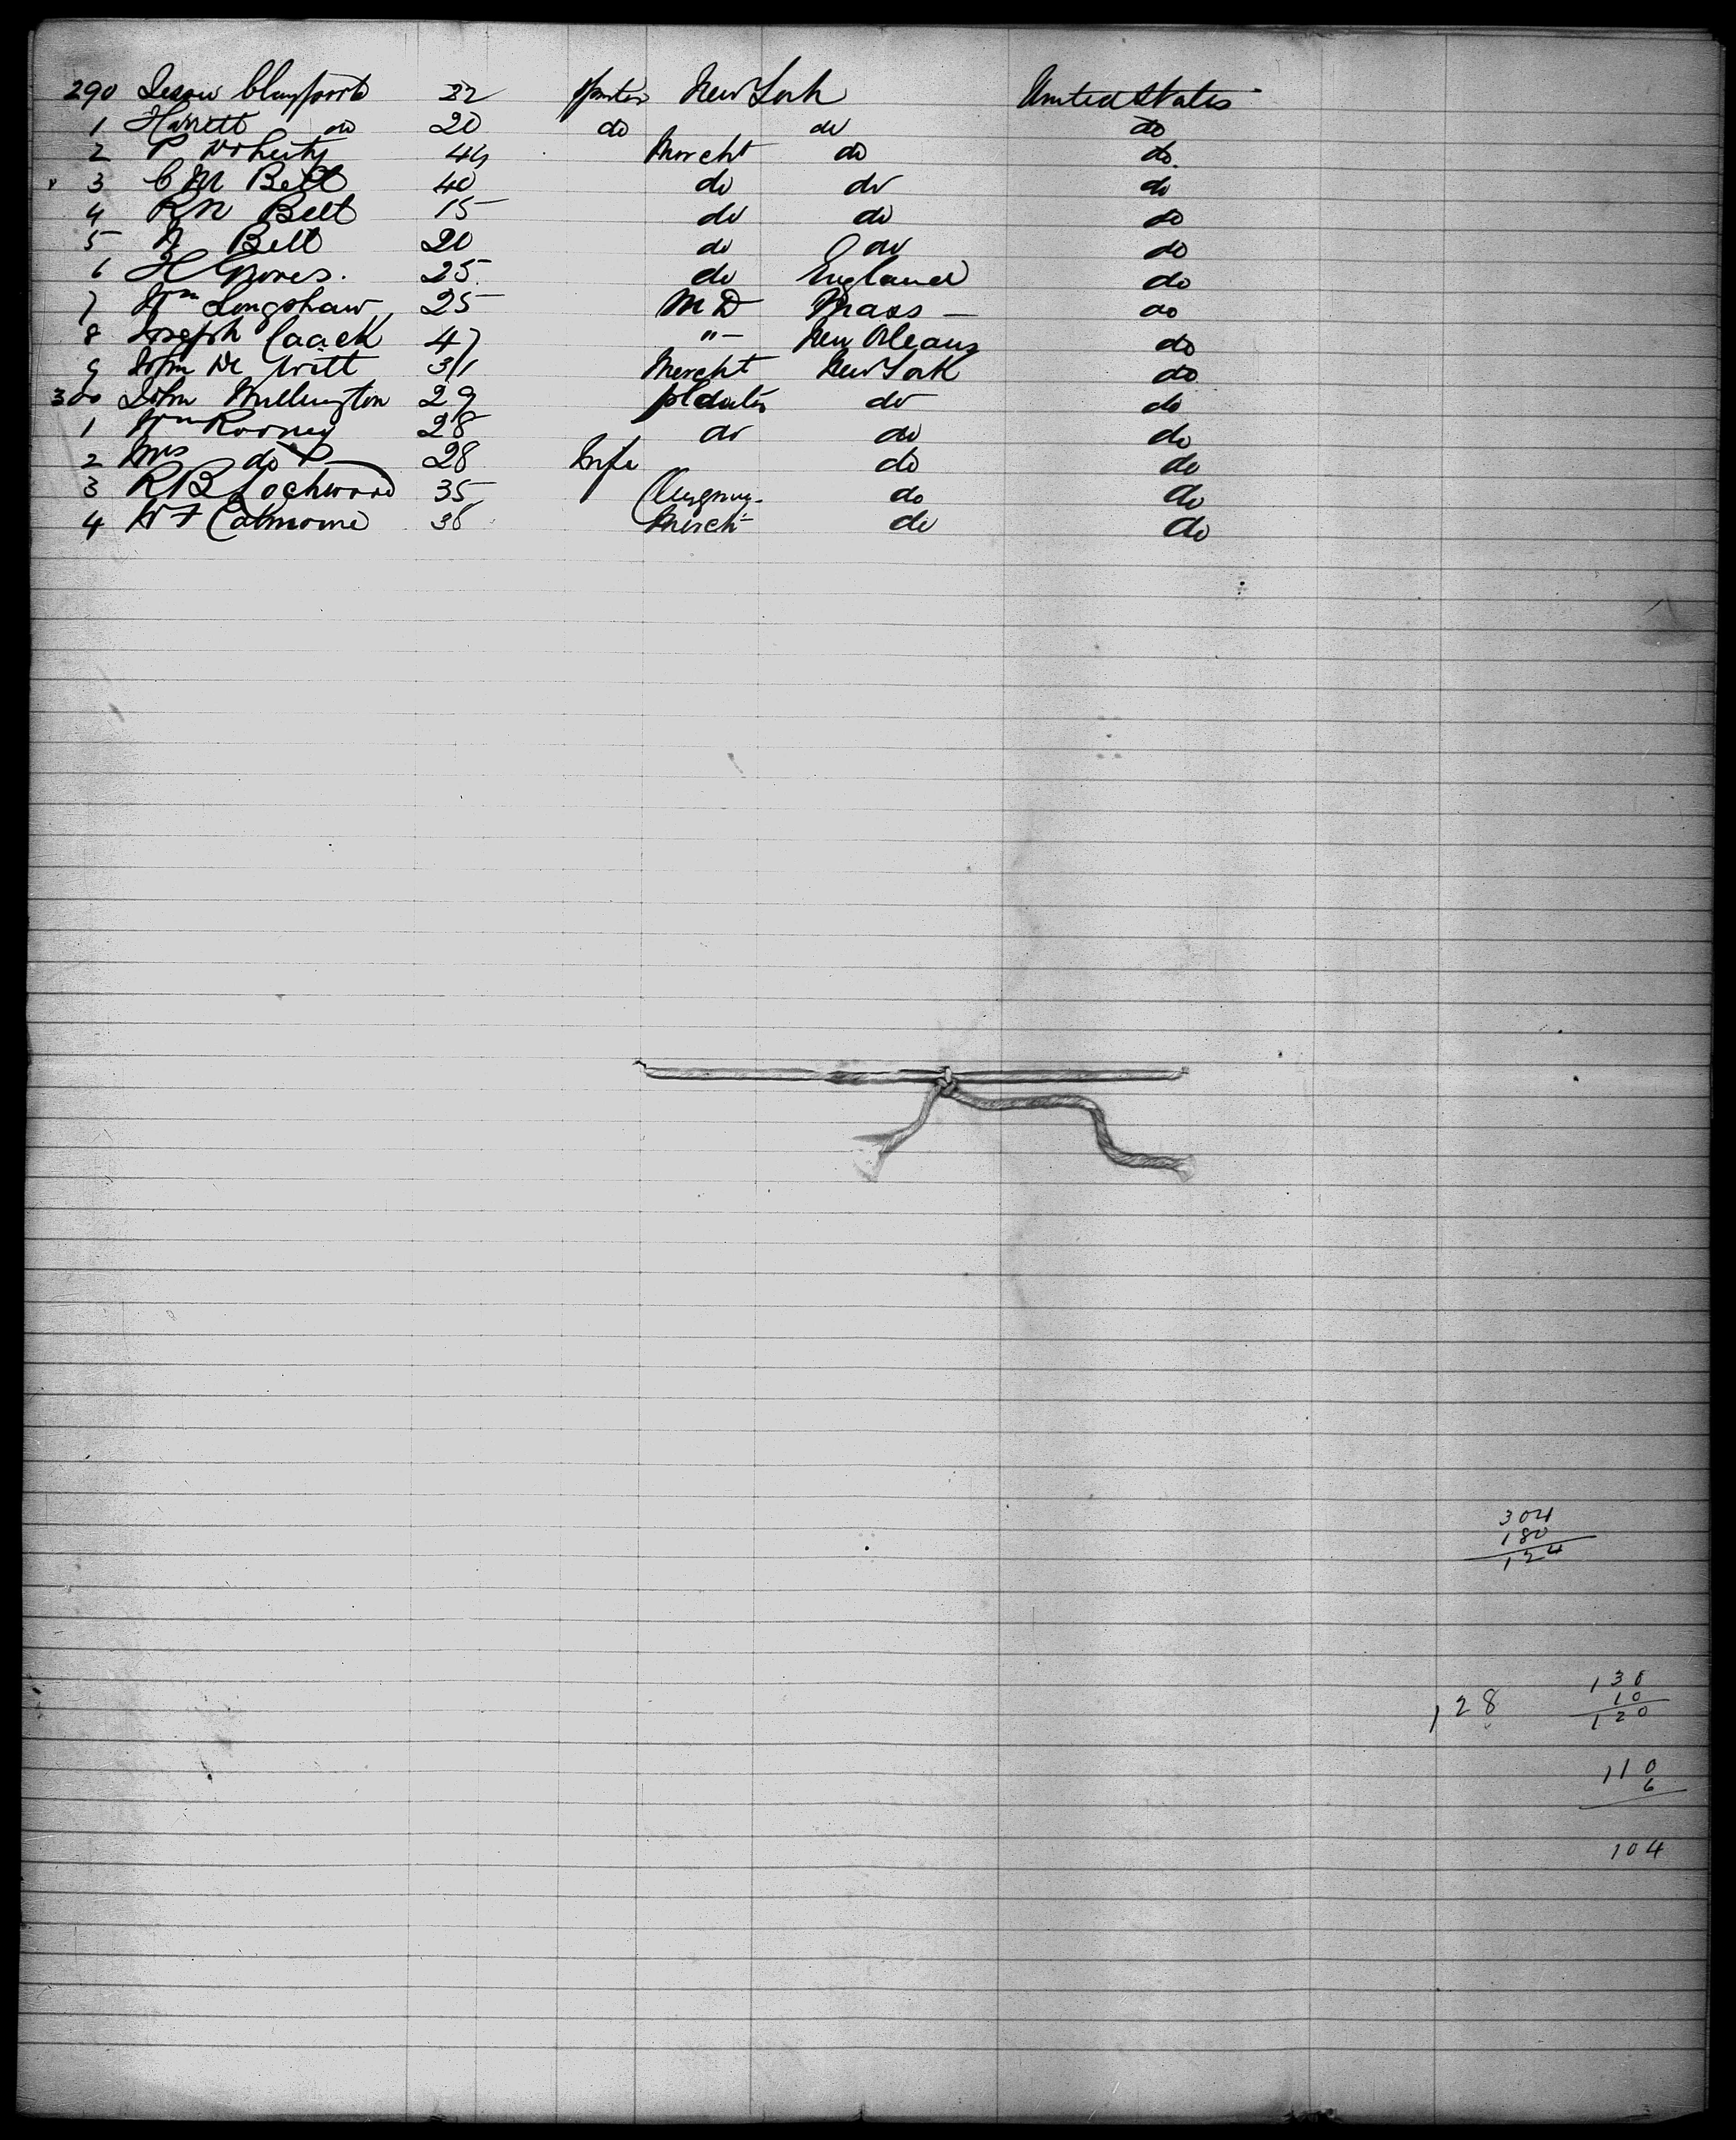 290 Jessie Clayford 22 Spinster New York United States
1 Harrett do 20 do do do
2 P Doherty 44 Mercht do do
3 C M Belt 40 do do do
4 R N Belt 15 do do do
5 Belt 20 do do do
6 H Gnores. 25 do England do
7 Wm Longshaw 25 M D Mass — do
8 Joseph Caack 47 "— New Orleans do
9 John De Witt 31 Mercht New York do
300 John Mullington 29 do do
1 Wm Rooney 28 do do do
2 Mrs do 28 Wife do do
3 R B Lockwood 35 Clergmy- do do
4 W F Colmorne 38 Merch- do do
304
180
124
128
130
10
120
110
6
104